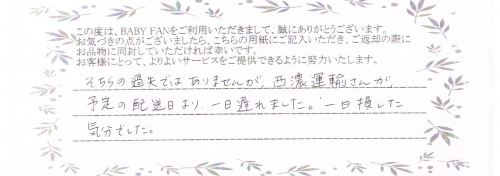 この度は、BABY FANをご利用いただきまして、誠にありがとうございます。
お気づきの点がございましたら、こちらの用紙にご記入いただき、ご返却の際に
お品物に同封していただければ幸いです。
お客様にとって、よりよいサービスをご提供できるように努力いたします。
そちらの過失ではありませんが、西濃運輸さんが、
予定の配送日より、一日遅れました。一日損した
気分でした。